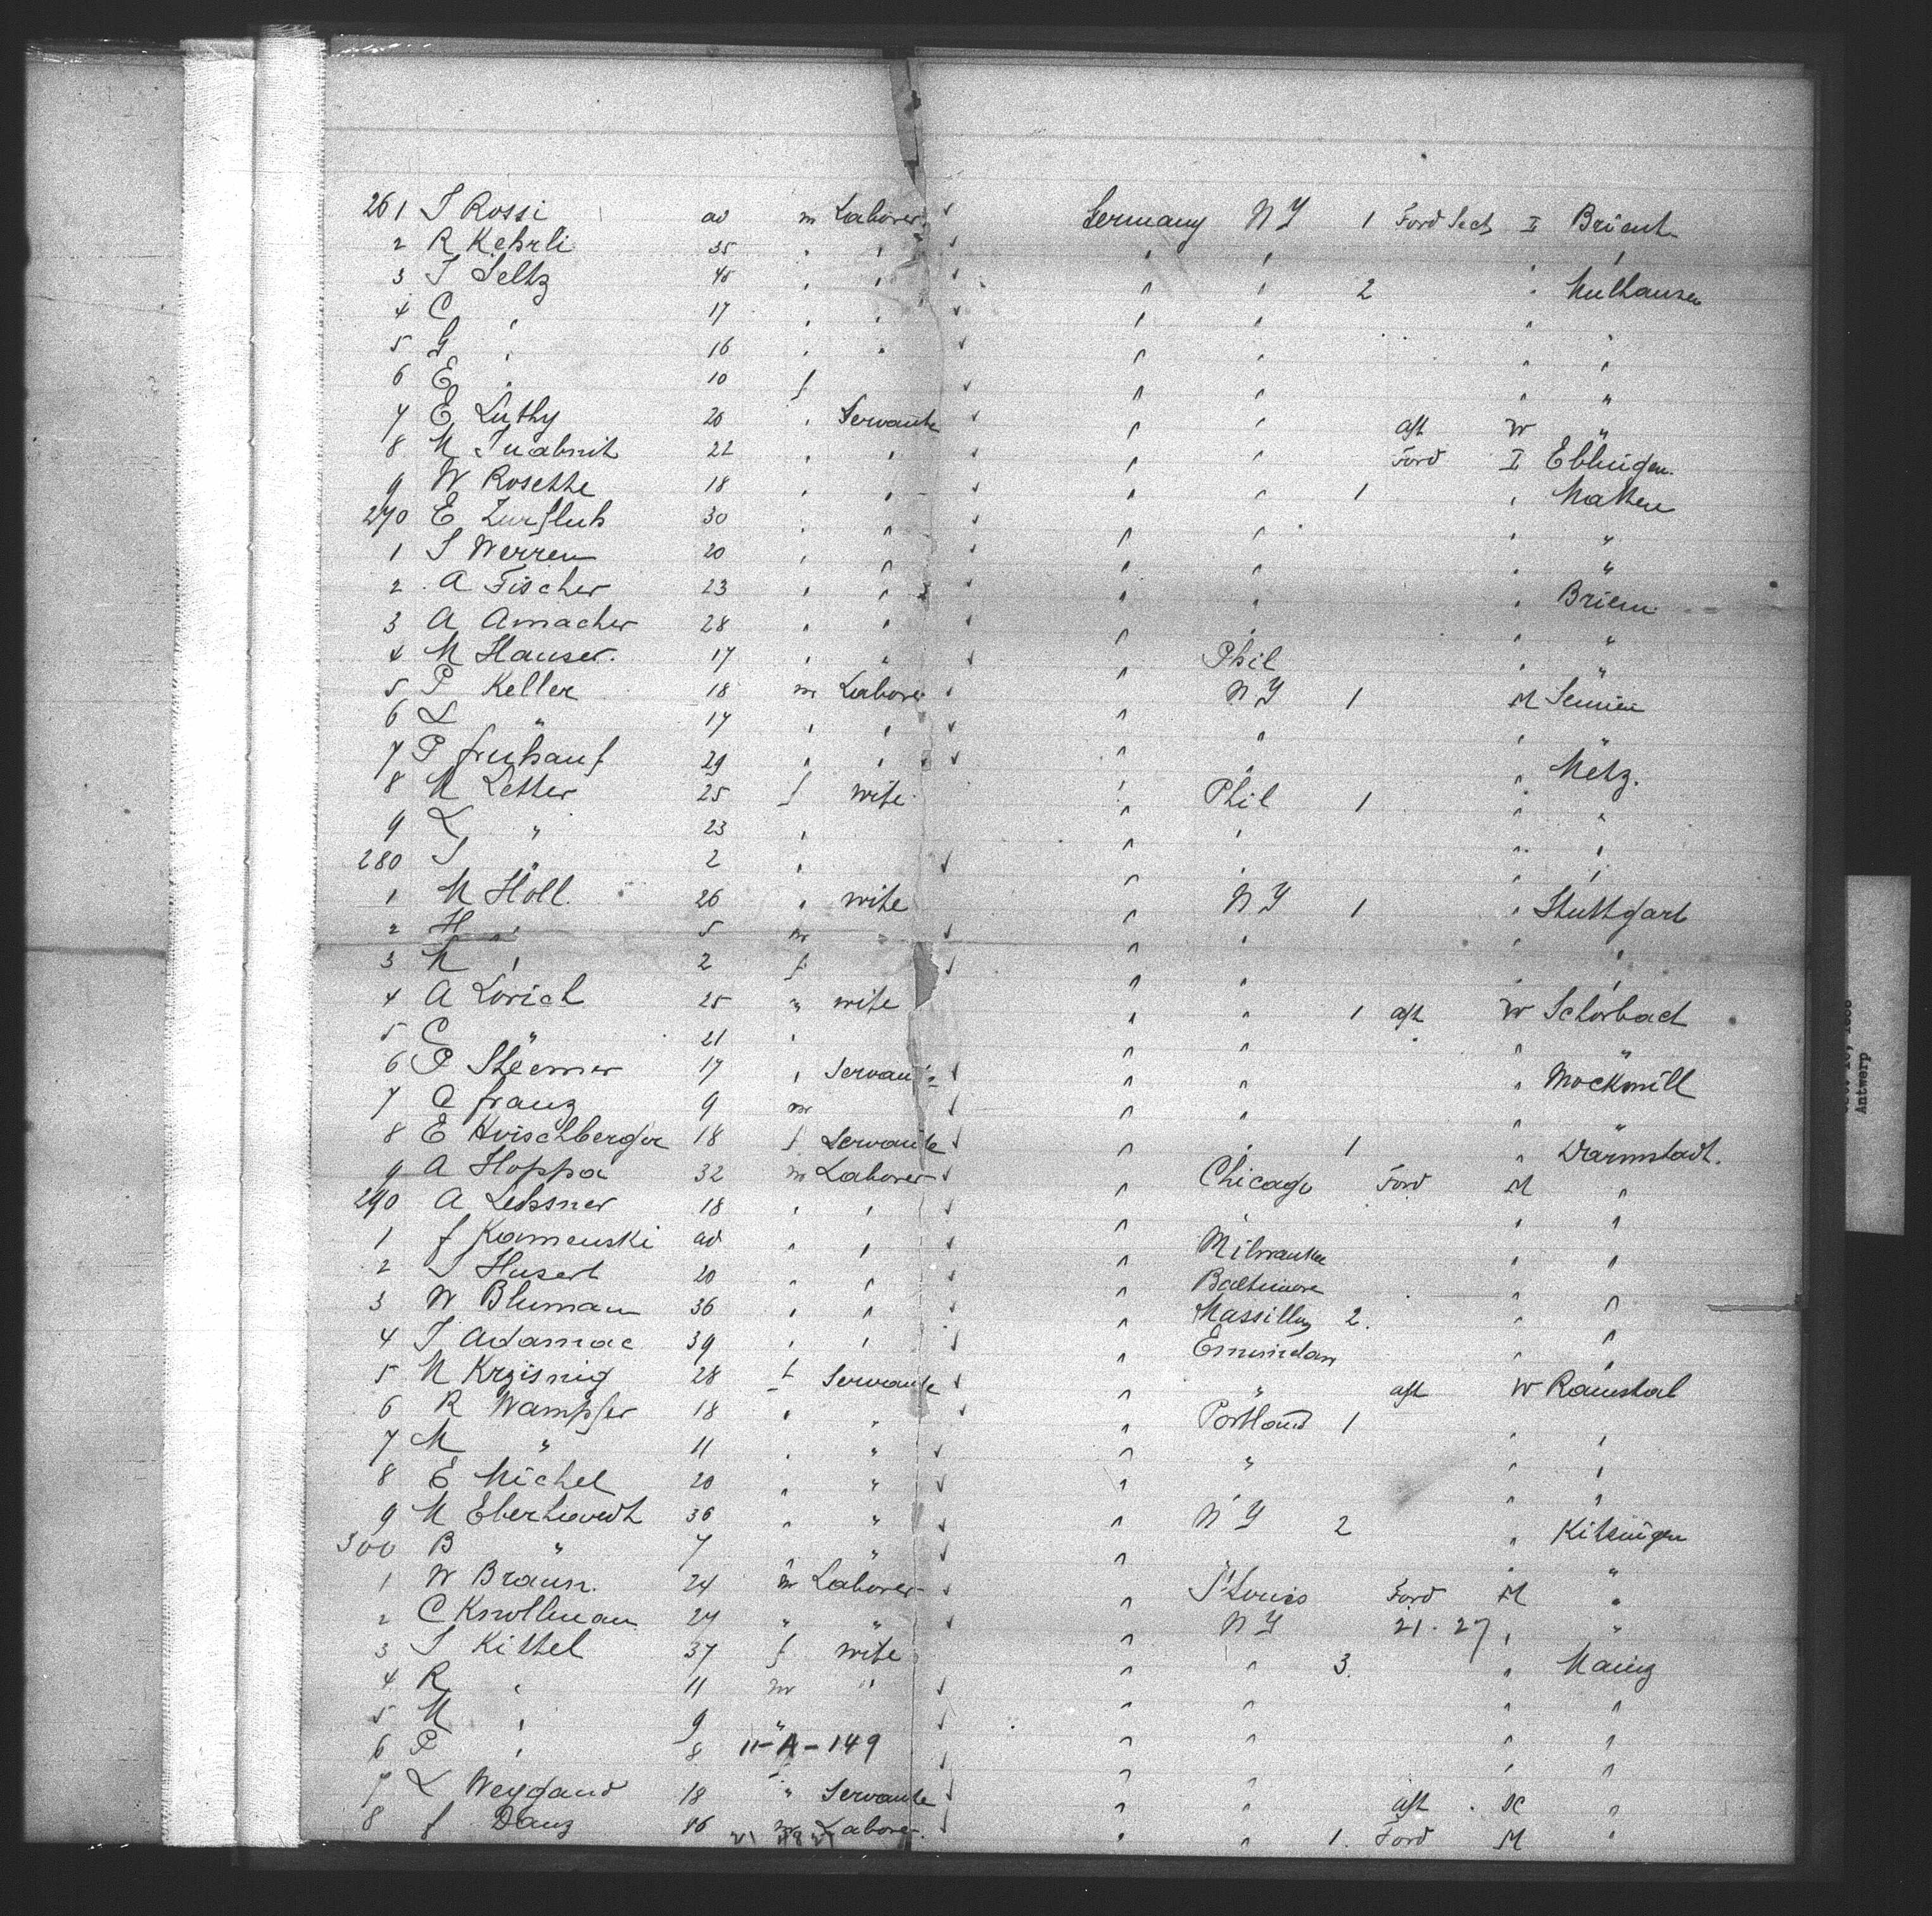 261 J Rossi ad m Laborer ✓ Germany N Y 1 Ford Sect II Brient
2 R Kehrli 35 " " ✓ " " " "
3 J Seltz 45 " " ✓ " " 2 " Mulhausen
4 C " 17 " " ✓ " " " "
5 G " 16 " " ✓ " " " "
6 E " 10 f ✓ " " " "
7 E Luthy 20 " Servante ✓ " " aft W "
8 M 22 " " ✓ " " Ford II Eblingen
9 W Rosette 18 " " ✓ " " 1 " Matten
270 E Zurfluh 30 " " ✓ " " " "
1 S Werren 20 " " ✓ " " " "
2 A Fischer 23 " " ✓ " " " Brien
3 A Amacher 28 " " ✓ " " " "
4 M Hauser. 17 " " ✓ " Phil " "
5 P Keller 18 m Laborer ✓ " N Y 1 M
6 L " 17 " " ✓ " " " "
7 P fruhauf 29 " " ✓ " " " Metz.
8 M Letter 25 f wife " Phil 1 " "
9 L " 23 " " " " "
280 J " 2 " ✓ " " " "
1 M Holl. 26 " wife " N Y 1 " Stuttgart
2 H " 5 m ✓ " " " "
3 M " 2 f ✓ " " " "
4 A Lorich 25 " wife " " 1 aft W Schorbach
5 C " 21 " " " " "
6 P Steemer 17 " Servante ✓ " " " Mockmill
7 C franz 9 m ✓ " " " "
8 E Hirschberger 18 f Servante ✓ " " 1 " Darmstadt.
9 A Hoppa 32 m Laborer ✓ " Chicago Ford M "
290 A Lessner 18 " " ✓ " " " "
1 f Kamenski ad " " ✓ " Milwaukee " "
2 J Husert 20 " " ✓ " Baltimore " "
3 W Bluman 36 " " ✓ " Massillon 2. " "
4 J Adamac 39 " " ✓ " " "
5 M Krzisnig 28 f Servante ✓ " " aft W Ramstal
6 R Wampfer 18 " " ✓ " Portland 1 " "
7 M " 11 " " ✓ " " " "
8 E Michel 20 " " ✓ " " " "
9 M 36 " " ✓ " N Y 2 " Kitzingen
300 B " 7 " ✓ " " "
1 W Braun. 24 m Laborer ✓ " St Louis Ford M "
2 C Knollman 27 " " ✓ " N Y 21 . 27 " "
3 J Kittel 37 f wife " " 3. " Mainz
4 R " 11 m " ✓ " " " "
5 M " 9 " ✓ " " " "
6 P " 8 11-A-149 ✓ " " "
7 L Weygand 18 " Servante ✓ " " aft "
8 f Danz 46 m Laborer. ✓ " " 1. Ford M "
Antwerp